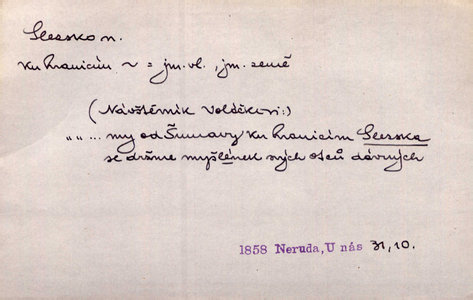 Slezsko n.
ku hranicím ~ = jm. vl., jm. země
(Návštěvník Volděkovi:)
„„ ... my od Šumavy ku hranicím Slezska
se držme myšlének svých otců dávných
1858 Neruda, U nás 31, 10.